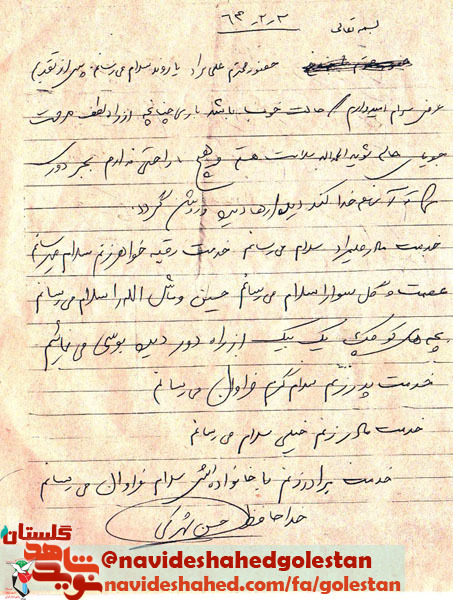 بسمه تعالی
۶۳-۲-۲
حضور محترم علی مراد یاروند سلام می رسانم. پس از تقدیم
عرض سلام امیدوارم حالت خوب باشد باری چنانچه از راه لطف و مرحمت
جویای حالم شوید الحمدالله سلامت هستم و هیچ ناراحتی ندارم بجز دوری
شما آنهم خدا کند دیدارها دیده روشن گردد.
خدمت مادر علیمراد سلام می رسانم خدمت رقیه خواهرزنم سلام میرسانم
عصمت و گل سوار سلام می رسانم حسین و ماشاالله را سلام می رسانم
بچه های کوچک یک بیک از راه دور دیده بوسی می نمائیم
خدمت پدرزنم سلام گرم فراوان می رسانم
خدمت مادرزنم خیلی سلام می رسانم
خدمت برادرزنم با خانواده اش سلام فراوان می رسانم
خداحافظ حسن شهرکی
گلستان
نوید شاهد
@navideshahedgolestan
navideshahed.com/fa/golestan